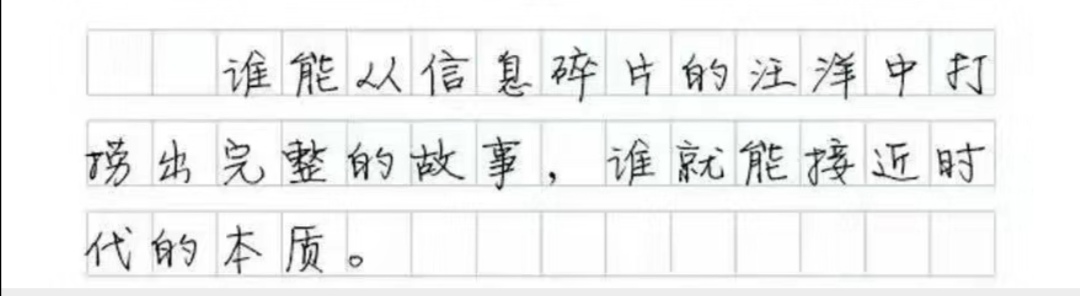 谁能从信息碎片的汪洋中打
捞出完整的故事,谁就能接近时
代的本质。